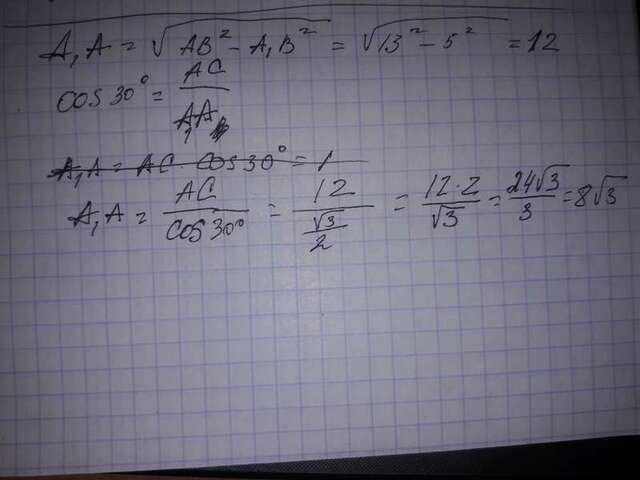 A₁A = √(AB² - A₁B²) = √(13² - 5²) = 12
cos 30° = AC / A₁A
A₁A = AC · cos 30° = 1
A₁A = AC / cos 30° = 12 / (√3 / 2) = 12 · 2 / √3 = 24√3 / 3 = 8√3